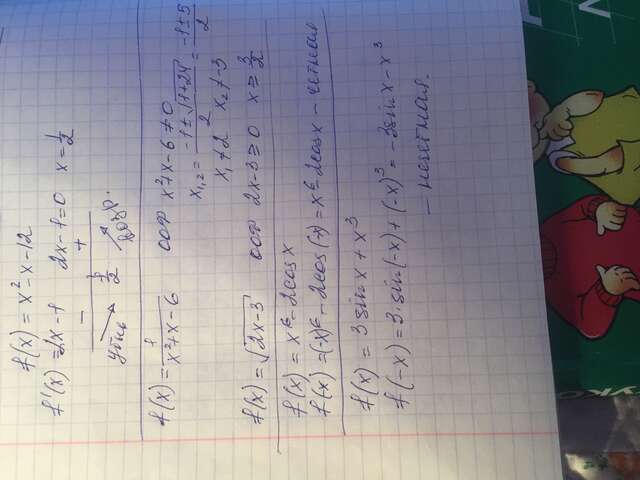 f(x) = x² - x - 12
f'(x) = 2x - 1   2x - 1 = 0   x = 1/2
-   +
1/2
возр.
f(x) = 1/(x² + x - 6)   ООФ   x² + x - 6 ≠ 0
x₁,₂ = (-1 ± √(1+24))/2 = (-1 ± 5)/2
x₁ ≠ 2   x₂ ≠ -3
f(x) = √(2x-3)   ООФ   2x - 3 ≥ 0   x ≥ 3/2
f(x) = x⁶ - 2cosx
f(-x) = (-x)⁶ - 2cos(-x) = x⁶ - 2cosx - четная
f(x) = 3sinx + x³
f(-x) = 3·sin(-x) + (-x)³ = -3sinx - x³
- нечетная.